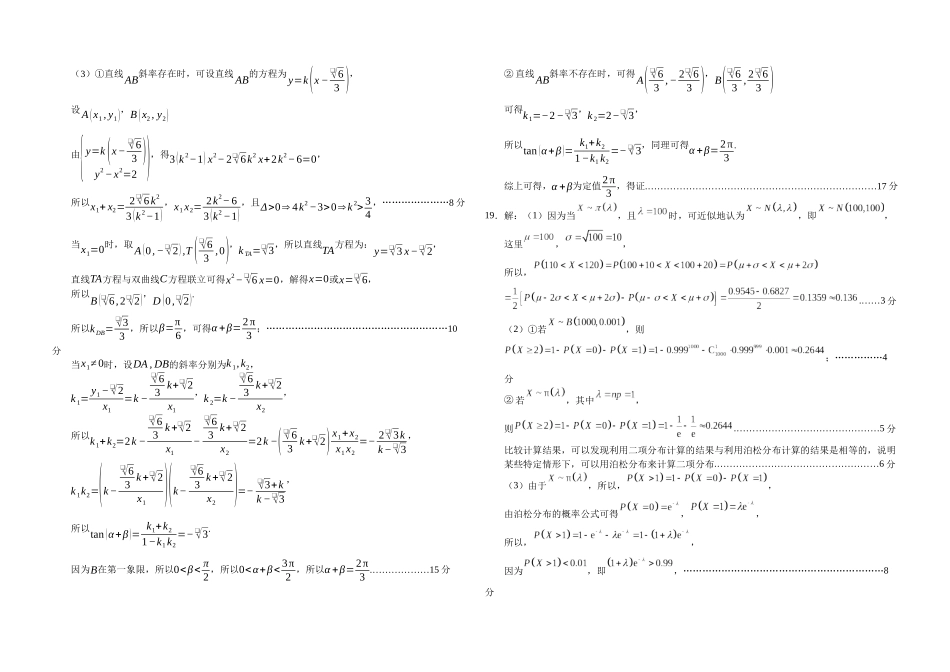 （3）①直线AB斜率存在时，可设直线AB的方程为y=k(x−√6/3)，
设A(x₁,y₁)，B(x₂,y₂)
由{y=k(x−√6/3) y²−x²=2}，得3(k²−1)x²−2√6k²x+2k²−6=0，
所以x₁+x₂=2√6k²/3(k²−1)，x₁x₂=2k²−6/3(k²−1)，且Δ>0⇒4k²−3>0⇒k²>3/4，…………………8分
当x₁=0时，取A(0,−√2),T(√6/3,0)，k_TA=√3，所以直线TA方程为：y=√3x−√2，
直线TA方程与双曲线C方程联立可得x²−√6x=0，解得x=0或x=√6，
所以B(√6,2√2)，D(0,√2).
所以k_DB=√3/3，所以β=π/6，可得α+β=2π/3；……………………………………………………10
分
当x₁≠0时，设DA,DB的斜率分别为k₁,k₂，
k₁=(y₁−√2)/x₁=k−(√6/3k+√2)/x₁，k₂=k−(√6/3k+√2)/x₂，
所以k₁+k₂=2k−(√6/3k+√2)/x₁−(√6/3k+√2)/x₂=2k−(√6/3k+√2)(x₁+x₂)/x₁x₂=−2√3k/(k−√3)，
k₁k₂=(k−(√6/3k+√2)/x₁)(k−(√6/3k+√2)/x₂)=−(√3+k)/(k−√3)，
所以tan(α+β)=(k₁+k₂)/(1−k₁k₂)=−√3.
因为B在第一象限，所以0<β<π/2，所以0<α+β<3π/2，所以α+β=2π/3………………15分
②直线AB斜率不存在时，可得A(√6/3,−2√6/3)，B(√6/3,2√6/3)
可得k₁=−2−√3，k₂=2−√3，
所以tan(α+β)=(k₁+k₂)/(1−k₁k₂)=−√3，同理可得α+β=2π/3.
综上可得，α+β为定值2π/3，得证………………………………………………………………17分
19．解：（1）因为当X~π(λ)，且λ=100时，可近似地认为X~N(λ,λ)，即X~N(100,100)，
这里μ=100，σ=√100=10，
所以，P(110<X<120)=P(100+10<X<100+20)=P(μ+σ<X<μ+2σ)
=1/2[P(μ−2σ<X<μ+2σ)−P(μ−σ<X<μ+σ)]≈(0.9545−0.6827)/2=0.1359≈0.136……3分
（2）①若X~B(1000,0.001)，则
P(X≥2)=1−P(X=0)−P(X=1)=1−0.999¹⁰⁰⁰−C¹₁₀₀₀·0.999⁹⁹⁹·0.001≈0.2644；……………4
分
②若X~π(λ)，其中λ=np=1，
则P(X≥2)=1−P(X=0)−P(X=1)=1−1/e−1/e≈0.2644………………………………………5分
比较计算结果，可以发现利用二项分布计算的结果与利用泊松分布计算的结果是相等的，说明
某些特定情形下，可以用泊松分布来计算二项分布………………………………………………6分
（3）由于X~π(λ)，所以，P(X>1)=1−P(X=0)−P(X=1)，
由泊松分布的概率公式可得P(X=0)=e^−λ，P(X=1)=λe^−λ，
所以，P(X>1)=1−e^−λ−λe^−λ=1−(1+λ)e^−λ，
因为P(X>1)<0.01，即(1+λ)e^−λ>0.99，…………………………………………………………8
分